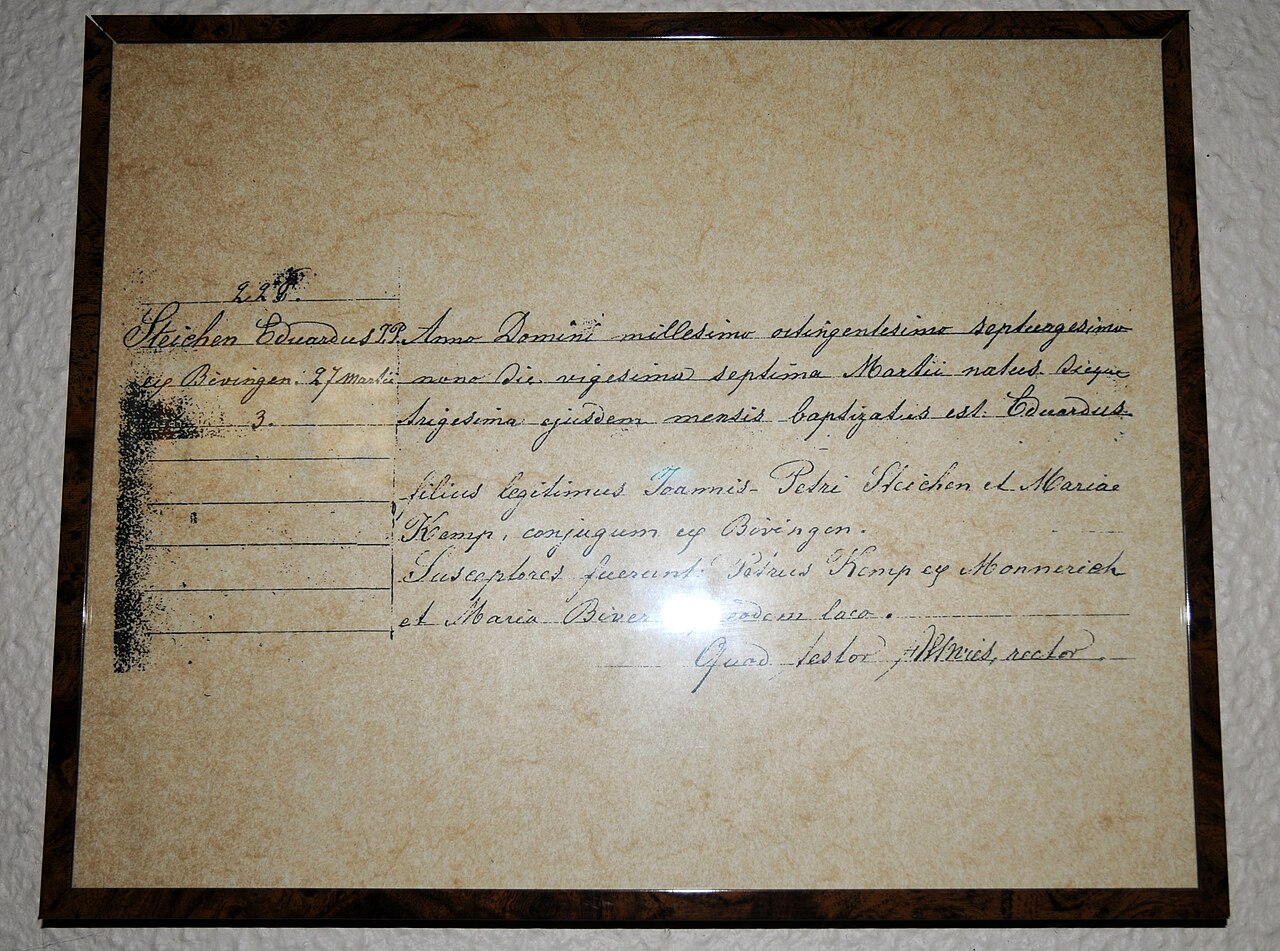 228.
Steichen Eduardus J.P.
ex Bivingen. 27 Martii
3.
Anno Domini millesimo octingentesimo septuagesimo
nono die vigesima septima Martii natus dieque
trigesima ejusdem mensis baptizatus est Eduardus
filius legitimus Joannis-Petri Steichen et Mariae
Kemp, conjugum ex Bivingen.
Susceptores fuerunt Petrus Kemp ex Monnerich
et Maria Biver eodem loco.
Quod testor rector.